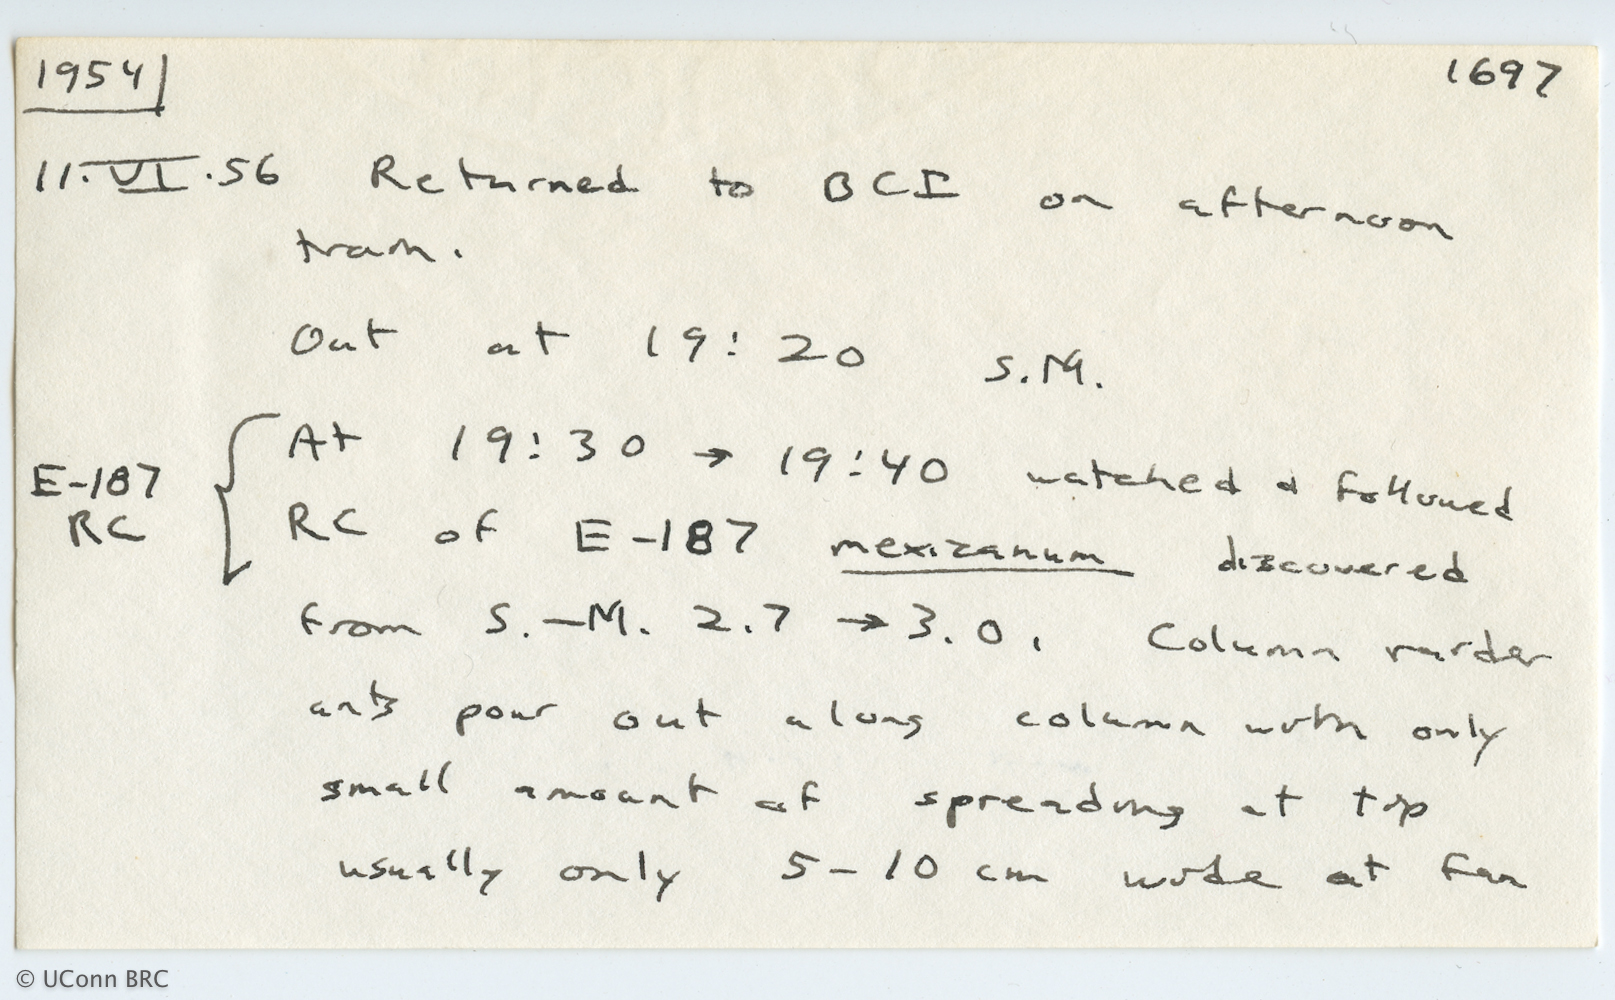 1954
1697
11.VI.56 Returned to BCI on afternoon
train.
Out at 19:20 S.M.
At 19:30 → 19:40 watched & followed
E-187
RC
RC of E-187 mexizanum discovered
from S.-M. 2.7 → 3.0. Column raider
ants pour out along column with only
small amount of spreading at top
usually only 5-10 cm wide at fan
© UConn BRC